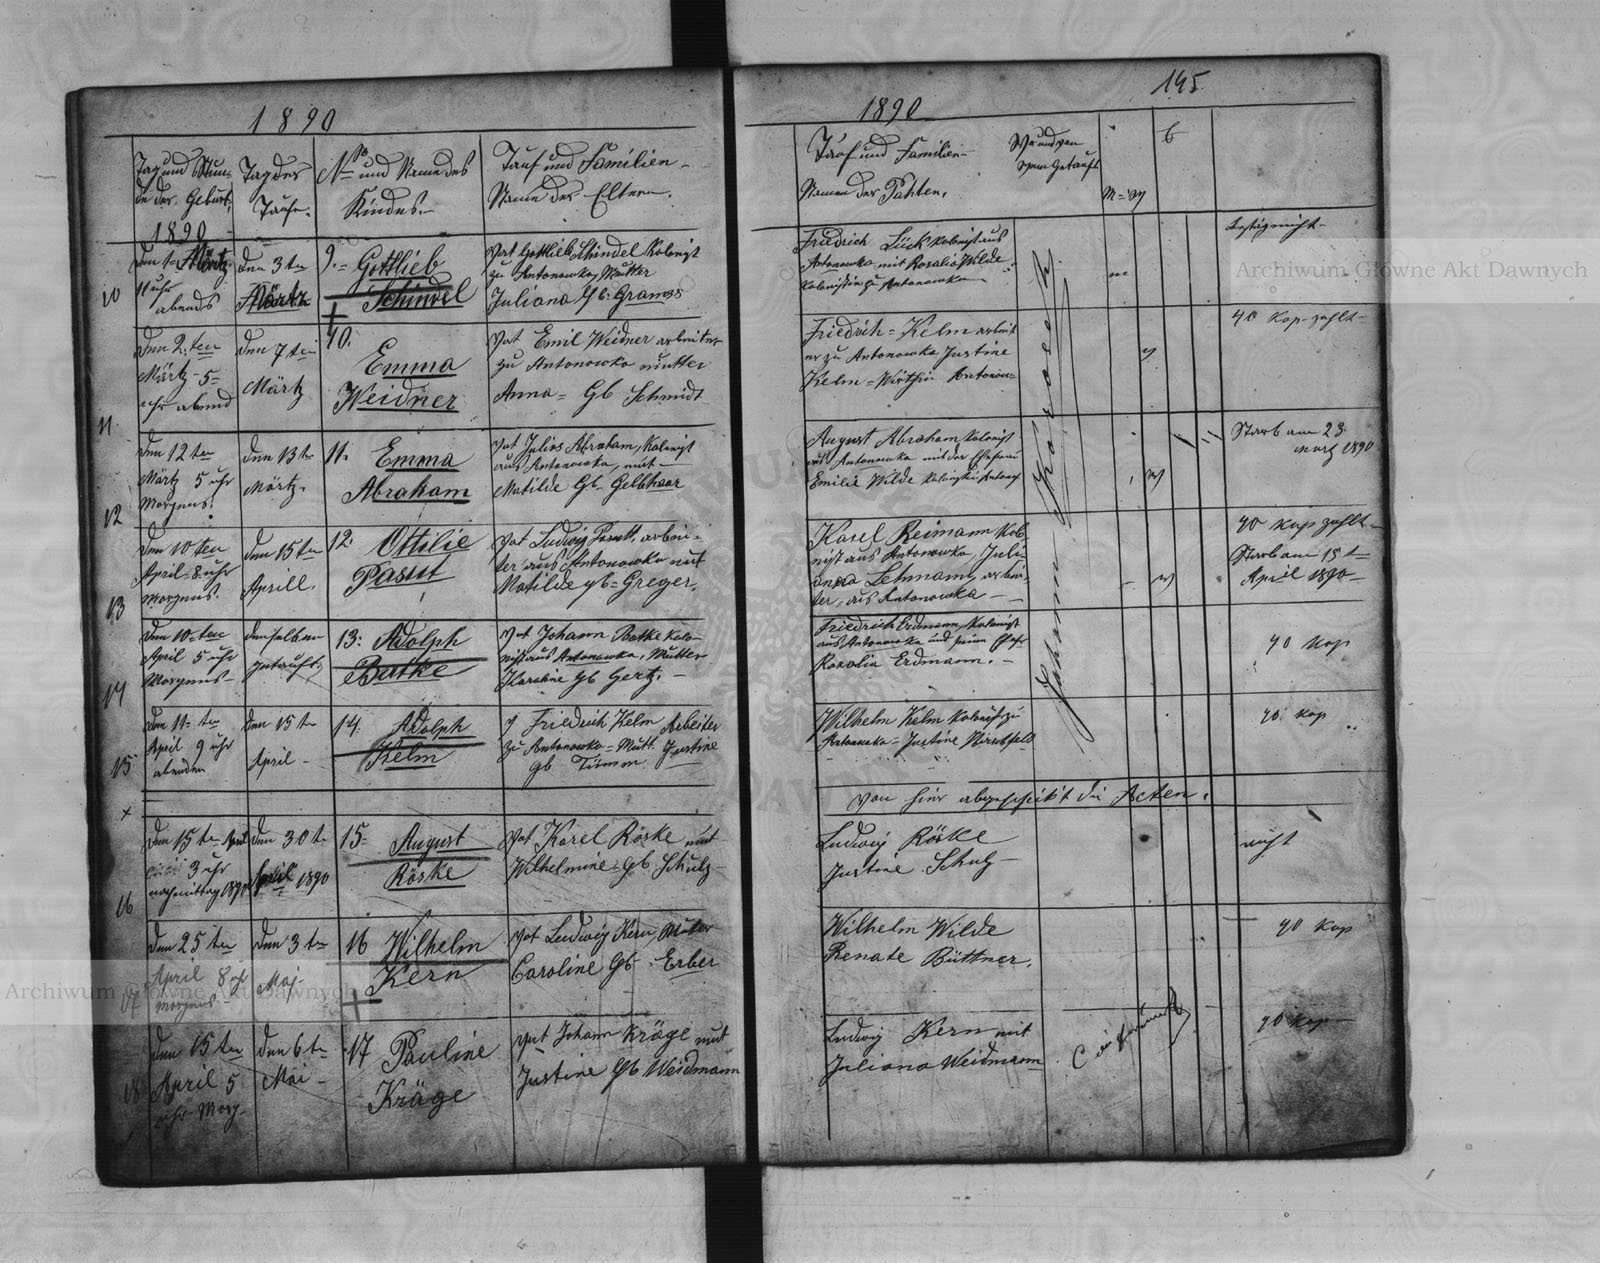 1890
Tag und Stun-
de der Geburt.
1890
Tag der
Taufe.
No und Name des
Kindes.
Tauf und Familien-
Name der Eltern.
10
Den 1ten Märtz
11 uhr
abends
Den 3ten
Märtz
9. Gottlieb
Schindel
Vat Gottlieb Schindel Kolonist
zu Antonowka, Mutter
Juliana Gb. Gramss
11
Den 2.ten
Märtz 5
uhr abend
Den 7ten
Märtz
10.
Emma
Weidner
Vat Emil Weidner arbeiter
zu Antonowka mutter
Anna = Gb Schmidt
12
Den 12ten
Märtz 5 uhr
Morgens.
Den 13te
Märtz.
11. Emma
Abraham
Vat Julius Abraham, Kolonist
aus Antonowka, mut
Matilde Gb. Gelbhaar
13
Den 10ten
April 8 uhr
Morgens.
Den 15ten
Aprill.
12. Ottilie
Vat Ludwig arbei-
ter aus Antonowka mut
Matilde gb = Greger.
14
Den 10ten
April 5 uhr
Morgens
Denselben
getauft
13. Adolph
Batke
Vat Johann Batke Kolo-
nist aus Antonowka, Mutter
Karoline Gb Gertz.
15
Den 11ten
April 9 uhr
abenden
Den 15ten
April
14. Adolph
Kelm
V Friedrich Kelm Arbeiter
zu Antonowka = Mutt. Justine
gb Timm
16
Den 15ten April
3 uhr
nachmittag 1890
Den 30te
April 1890
15. August
Röske
Vat Karel Röske mut
Wilhelmine Gb Schulz
17
Den 25ten
April 8 uhr
Morgens
Den 3ten
Maj
16 Wilhelm
Kern
Vat Ludwig Kern, Muter
Caroline Gb. Erber
18
Den 15ten
April 5
uhr Morg.
Den 6ten
Mai
17 Pauline
Kräge
Vat Johann Kräge mut
Justine Gb Weidmann
145.
1890
Tauf und Familien-
Namen der Pahten.
M = W
Friedrich Lück Kolonist aus
Antonowka mit Rosalie Wilde
Kolonistin zu Antonowka
m
Friedrich = Kelm arbeit
er zu Antonowka Justine
Kelm = Wirthin Antonow=
w
40 Kop zahlt
August Abraham Kolonist
aus Antonowka mit der Ehefrau
Emilie Wilde
w
Starb am 23.
März 1890
Karel Reimann Kolo
nist aus Antonowka, Juli
anna Lehmann arbei-
ter, aus Antonowka
w
40 Kop zahlt
Starb am 15te
April 1890
Friedrich Erdmann, Kolonist
aus Antonowka und seine Ehefr
Rosalia Erdmann.
40 Kop
Wilhelm Kelm Kolonist zu
Antonowka = Justine Hirschfeld
40 Kop
Von hier abgeschickt die Acten.
Ludwig Röske
Justine Schulz
nicht
Wilhelm Wilde
Renate Büttner.
40 Kop
Ludwig Kern mit
Juliana Weidmann
40 Kop
Archiwum Główne Akt Dawnych
Archiwum Główne Akt Dawnych